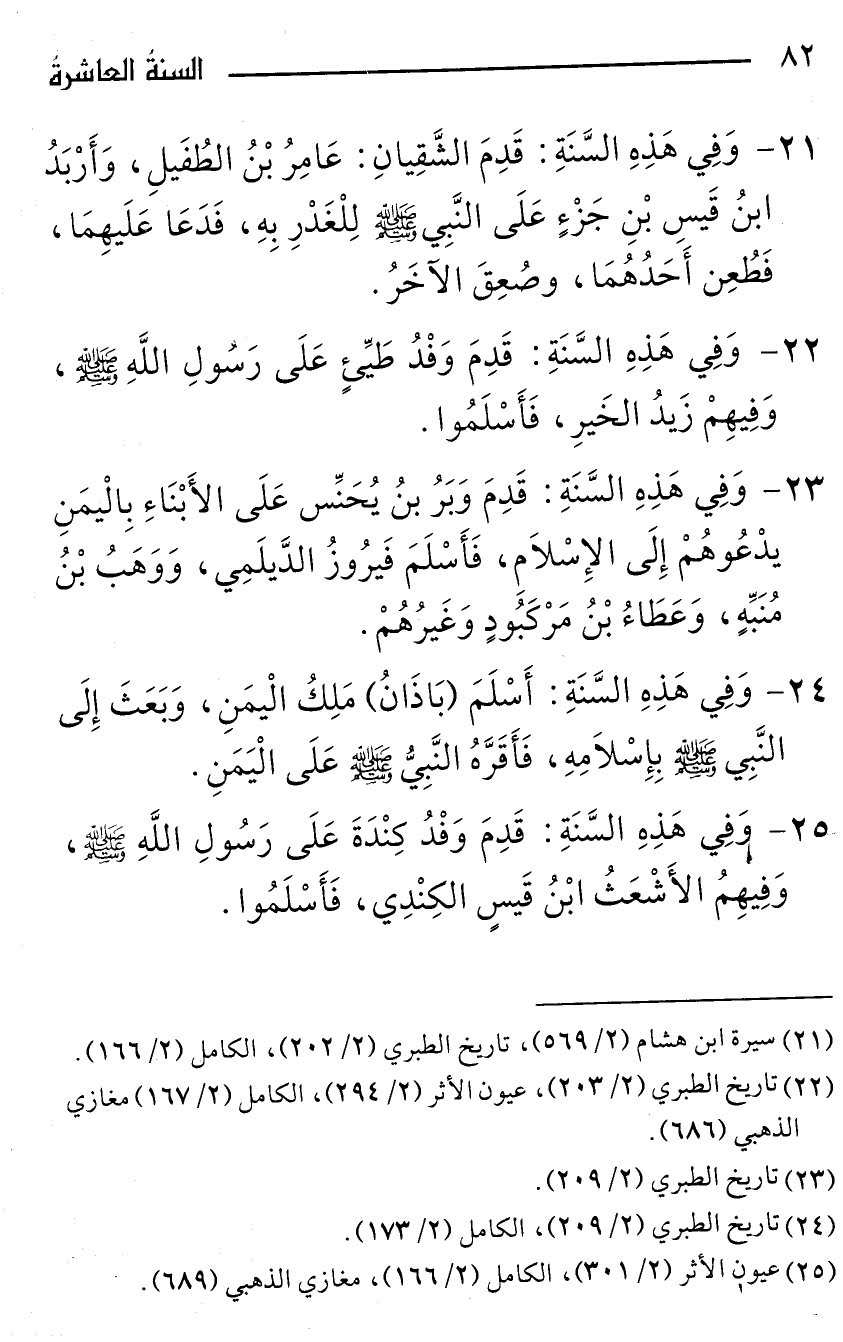 ٨٢ السنةُ العاشرةُ
٢١- وَفِي هَذِهِ السَّنَةِ: قَدِمَ الشَّقِيانِ: عَامِرُ بْنُ الطُفَيلِ، وَأَرْبَدُ
ابنُ قَيسِ بْنِ جَزْءٍ عَلَى النَّبِي ﷺ لِلْغَدْرِ بِهِ، فَدَعَا عَلَيهِمَا،
فَطُعِن أَحَدُهُمَا، وصُعِقَ الآخَرُ.
٢٢- وَفِي هَذِهِ السَّنَةِ: قَدِمَ وَفْدُ طَيِّئٍ عَلَى رَسُولِ اللَّهِ ﷺ،
وَفِيهِمْ زَيدُ الخَيرِ، فَأَسْلَمُوا.
٢٣- وَفِي هَذِهِ السَّنَةِ: قَدِمَ وَبَرُ بنُ يُحَنِّس عَلَى الأَبْنَاءِ بِالْيمَنِ
يدْعُوهُمْ إِلَى الإِسْلاَمِ، فَأَسْلَمَ فَيرُوزُ الدَّيلَمِي، وَوَهَبُ بْنُ
مُنَبِّهٍ، وَعَطَاءُ بْنُ مَرْكَبُودٍ وَغَيرُهُمْ.
٢٤- وَفِي هَذِهِ السَّنَةِ: أَسْلَمَ (بَاذَانُ) مَلِكُ الْيمَنِ، وَبَعَثَ إِلَى
النَّبِي ﷺ بِإِسْلاَمِهِ، فَأَقَرَّهُ النَّبِيُّ ﷺ عَلَى الْيَمَنِ.
٢٥- وَفِي هَذِهِ السَّنَةِ: قَدِمَ وَفْدُ كِنْدَةَ عَلَى رَسُولِ اللَّهِ ﷺ،
وَفِيهِمُ الأَشْعَثُ ابْنُ قَيسٍ الكِنْدِي، فَأَسْلَمُوا.
(٢١) سيرة ابن هشام (٢/ ٥٦٩)، تاريخ الطبري (٢/ ٢٠٢)، الكامل (٢/ ١٦٦).
(٢٢) تاريخ الطبري (٢/ ٢٠٣)، عيون الأثر (٢/ ٢٩٤)، الكامل (٢/ ١٦٧) مغازي
الذهبي (٦٨٦).
(٢٣) تاريخ الطبري (٢/ ٢٠٩).
(٢٤) تاريخ الطبري (٢/ ٢٠٩)، الكامل (٢/ ١٧٣).
(٢٥) عيون الأثر (٢/ ٣٠١)، الكامل (٢/ ١٦٦)، مغازي الذهبي (٦٨٩).